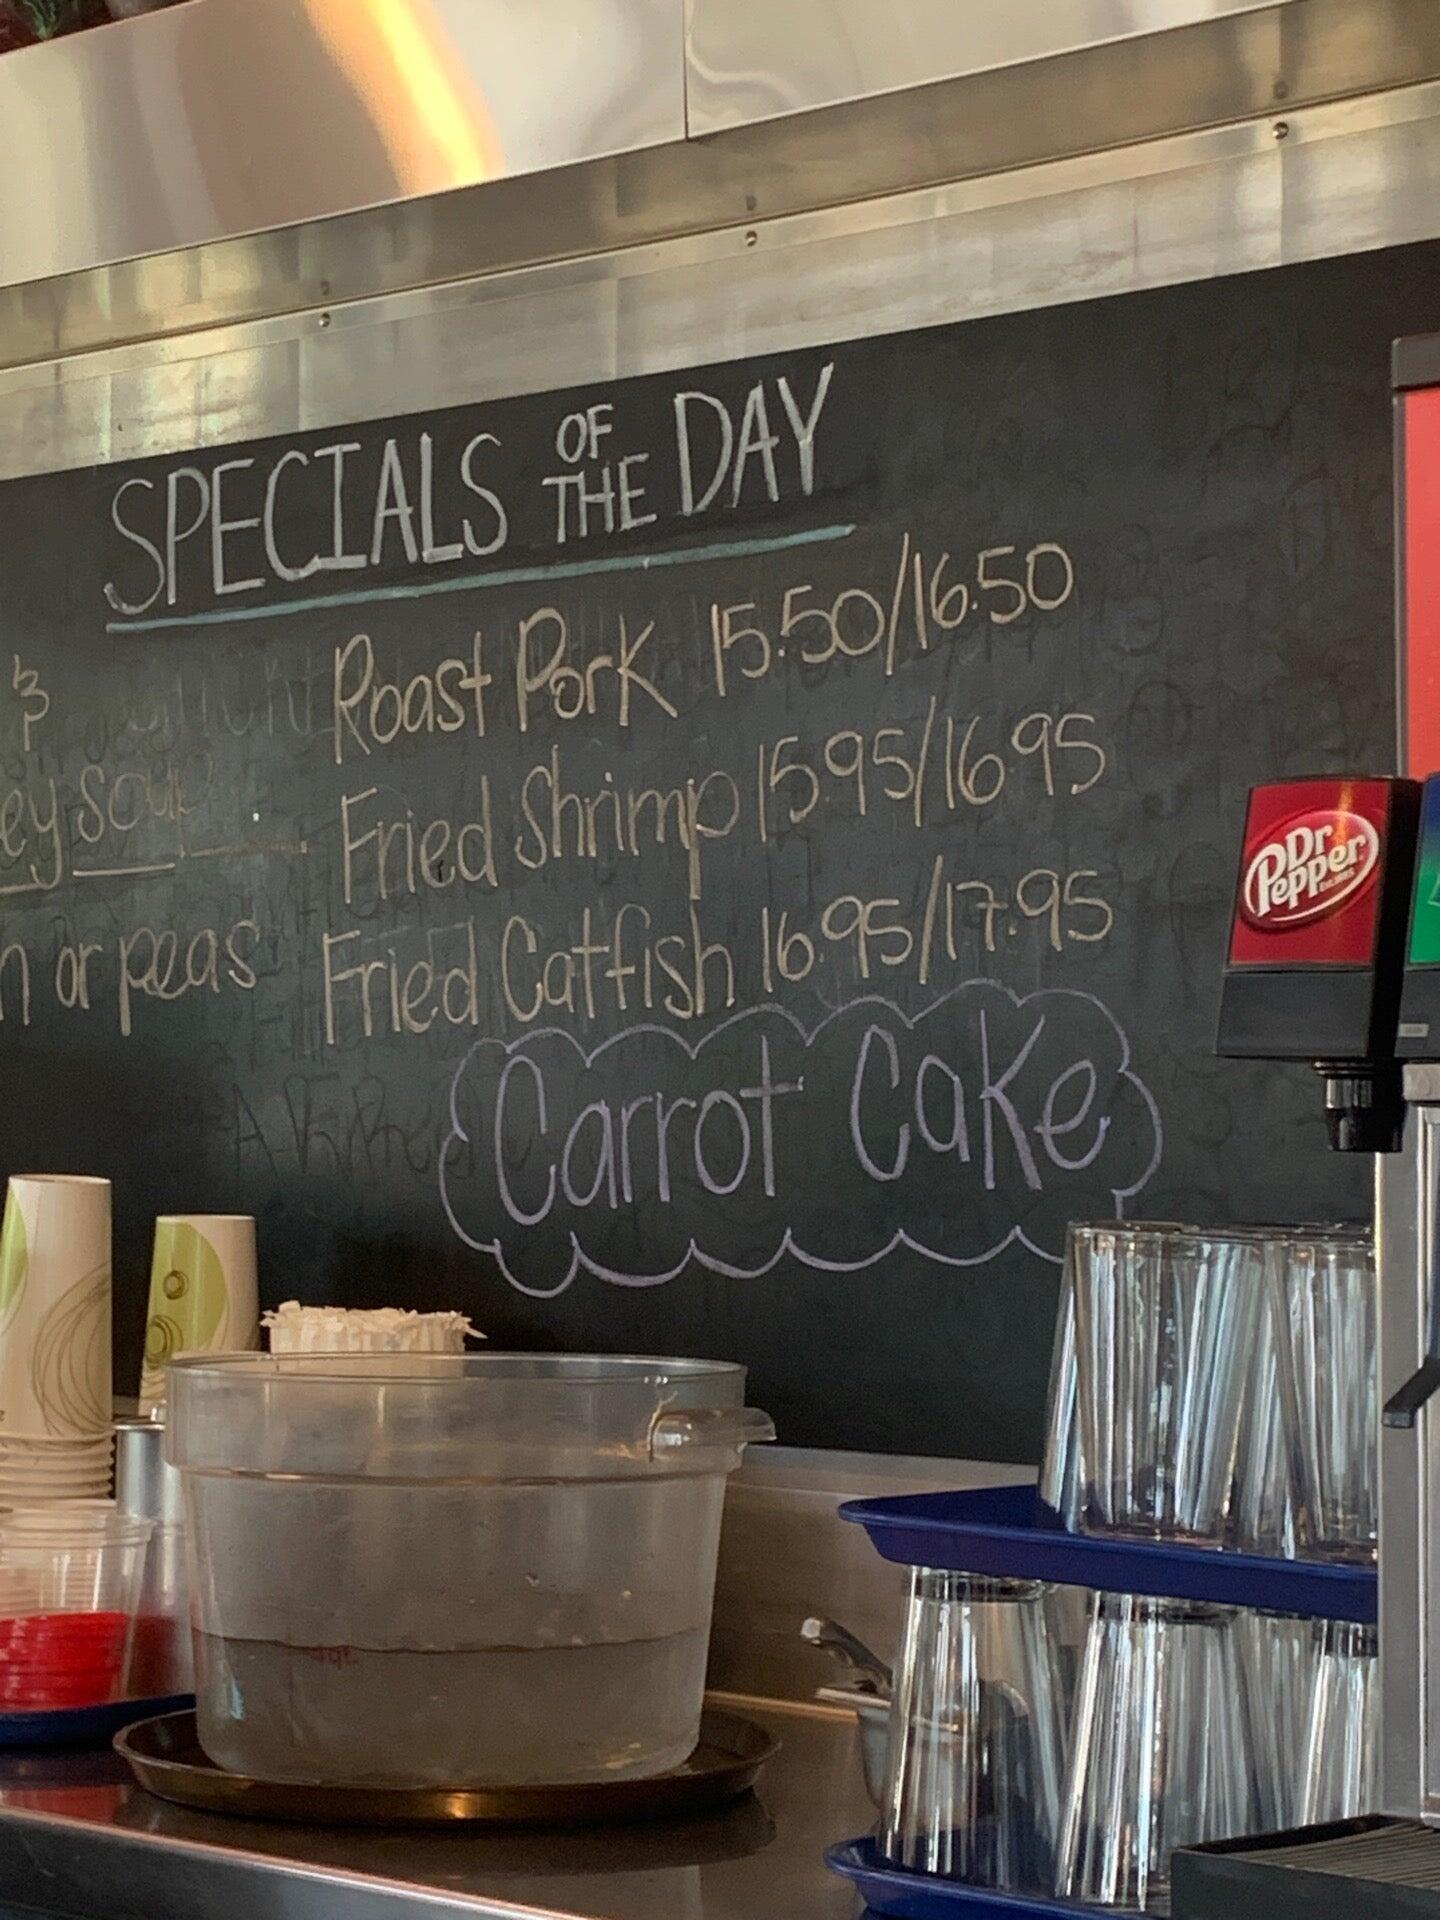 SPECIALS OF THE DAY
Roast Pork 15.50/16.50
Fried Shrimp 15.95/16.95
Fried Catfish 16.95/17.95
Carrot Cake
&
ey soup
n or peas
Dr Pepper